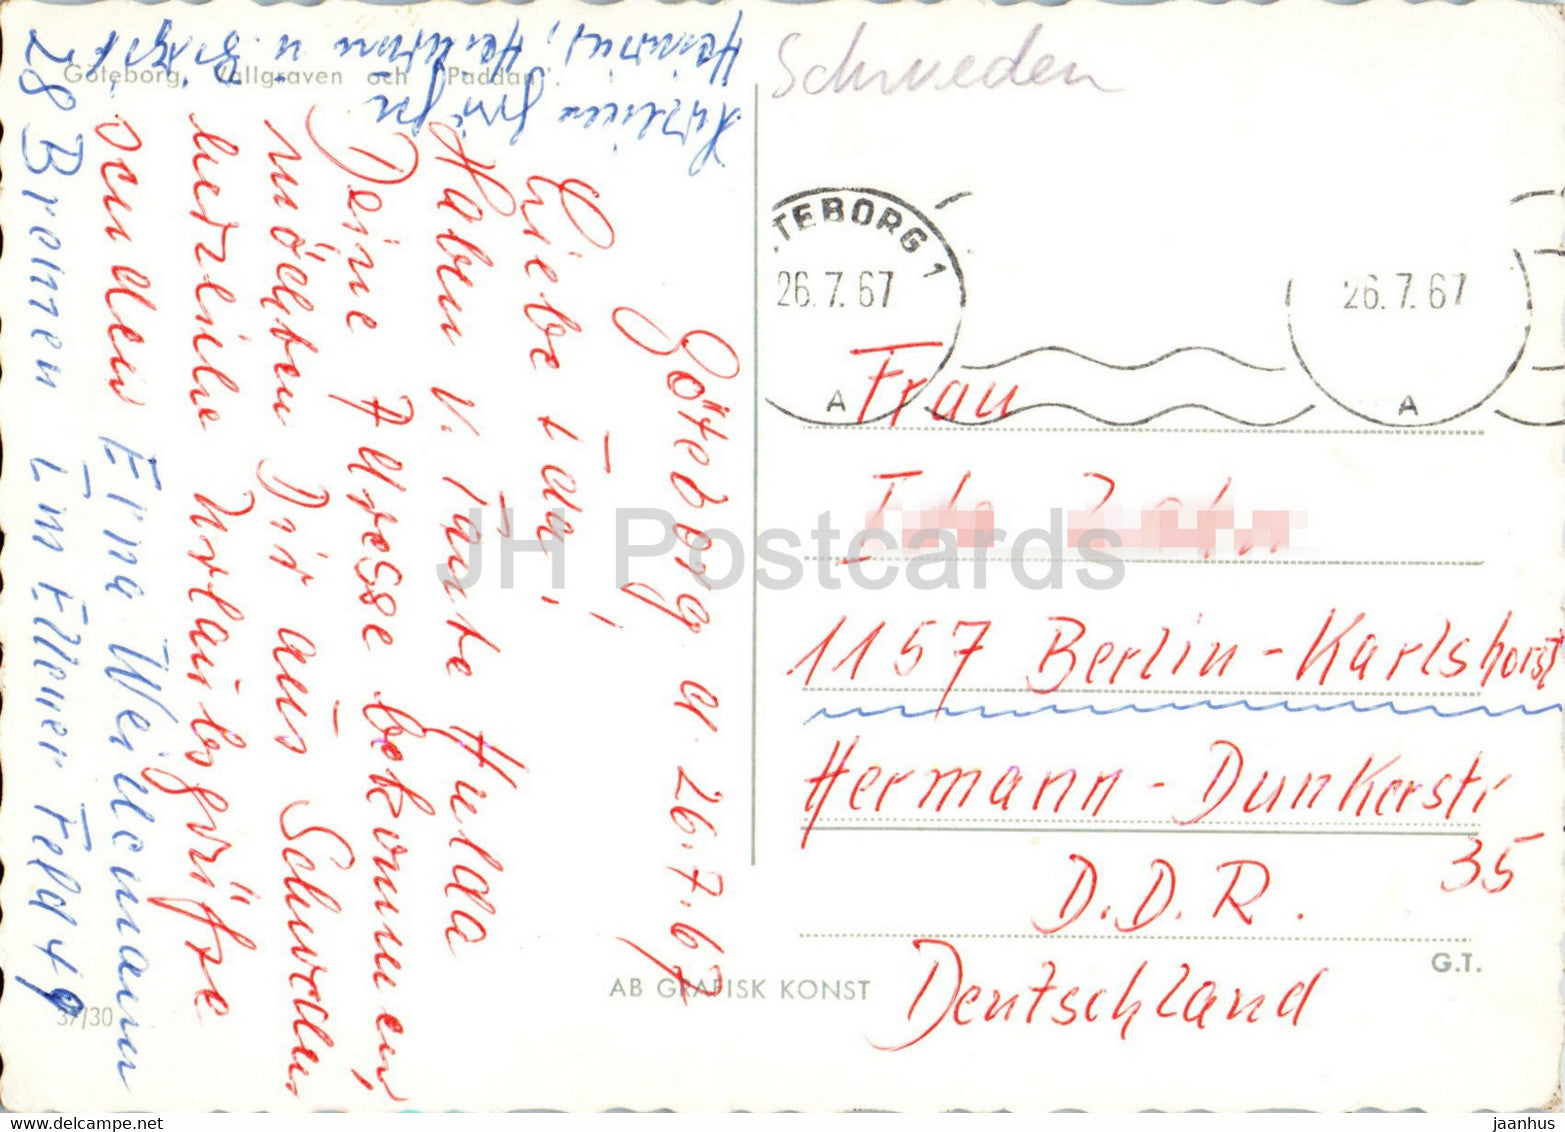 Göteborg, Vallgraven och "Paddan".
Schweden
GÖTEBORG 1
26.7.67
A
26.7.67
A
Göteborg d. 26.7.67
Liebe Ida!
Haben v. Tante Hulda
Deine Adresse bekommen,
möchten Dir aus Schweden
herzliche Urlaubsgrüße
senden
Erna Weillemann
28 Bremen Im Ellener Feld 49
Herzliche Grüße
Heinrich, u. Birgit
Frau
Ida
1157 Berlin-Karlshorst
Hermann-Dunkerstr
35
D.D.R.
Deutschland
AB GRAFISK KONST
G.T.
37/30
JH Postcards
www.delcampe.net
jaanhus